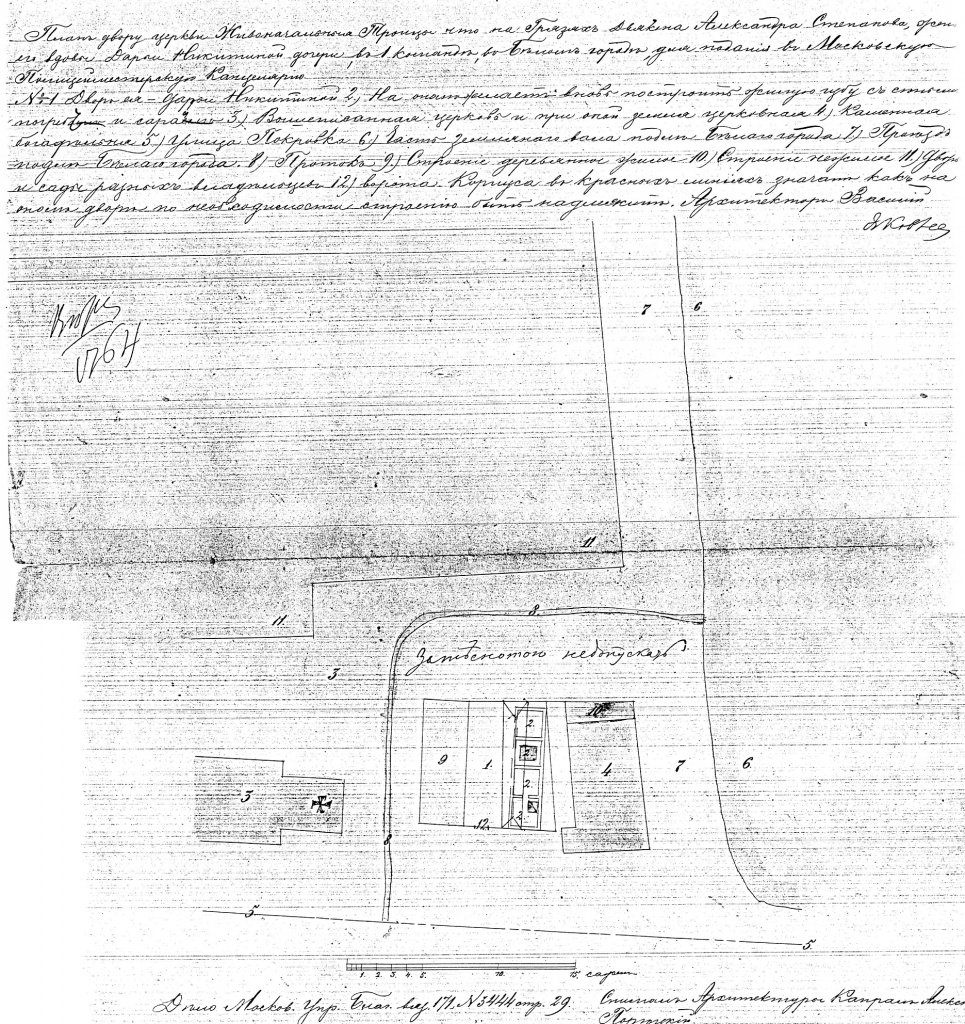 Планъ двору церкви Живоначальныя Троицы что на Грязяхъ дьякона Александра Степанова, жены
его вдовы Дарьи Никитиной дочери, въ 1 команде, въ Беломъ городе для подания въ Московскую
Полицеймейстерскую Канцелярию
№ 1 Дворъ ея - Дарьи Никитиной 2) На ономъ желаетъ вновь построить жилую избу съ сеньми
погребъ и сараемъ 3) Вышеписанная церковь и при оной земля церковная 4) Каменная
богадельня 5) Улица Покровка 6) Часть землянаго вала подле Белаго города 7) Проездъ
подле Белаго города. 8) Протокъ 9) Строение деревянное жилое 10) Строение нежилое 11) Дворы
и сады разныхъ владельцевъ 12) ворота. Корпуса въ красныхъ линияхъ значатъ какъ на
ономъ дворе по необходимости строению быть надлежитъ. Архитекторъ Василий
Яковлев
1764
7 6
11
11. 8.
3
недопускать
10.
2.
9 1. 2. 4 7 6.
3 2.
12. 2.
8
5. 5.
1. 2. 3. 4. 5. 10. 15. сажен
Дело Москов. Упр. Благ. вяз. 171. № 3444 стр. 29. Списалъ Архитектуры Капралъ Алекс